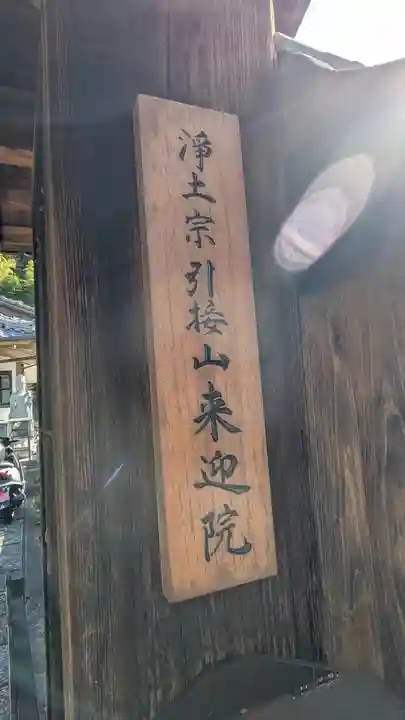 淨土宗引接山来迎院